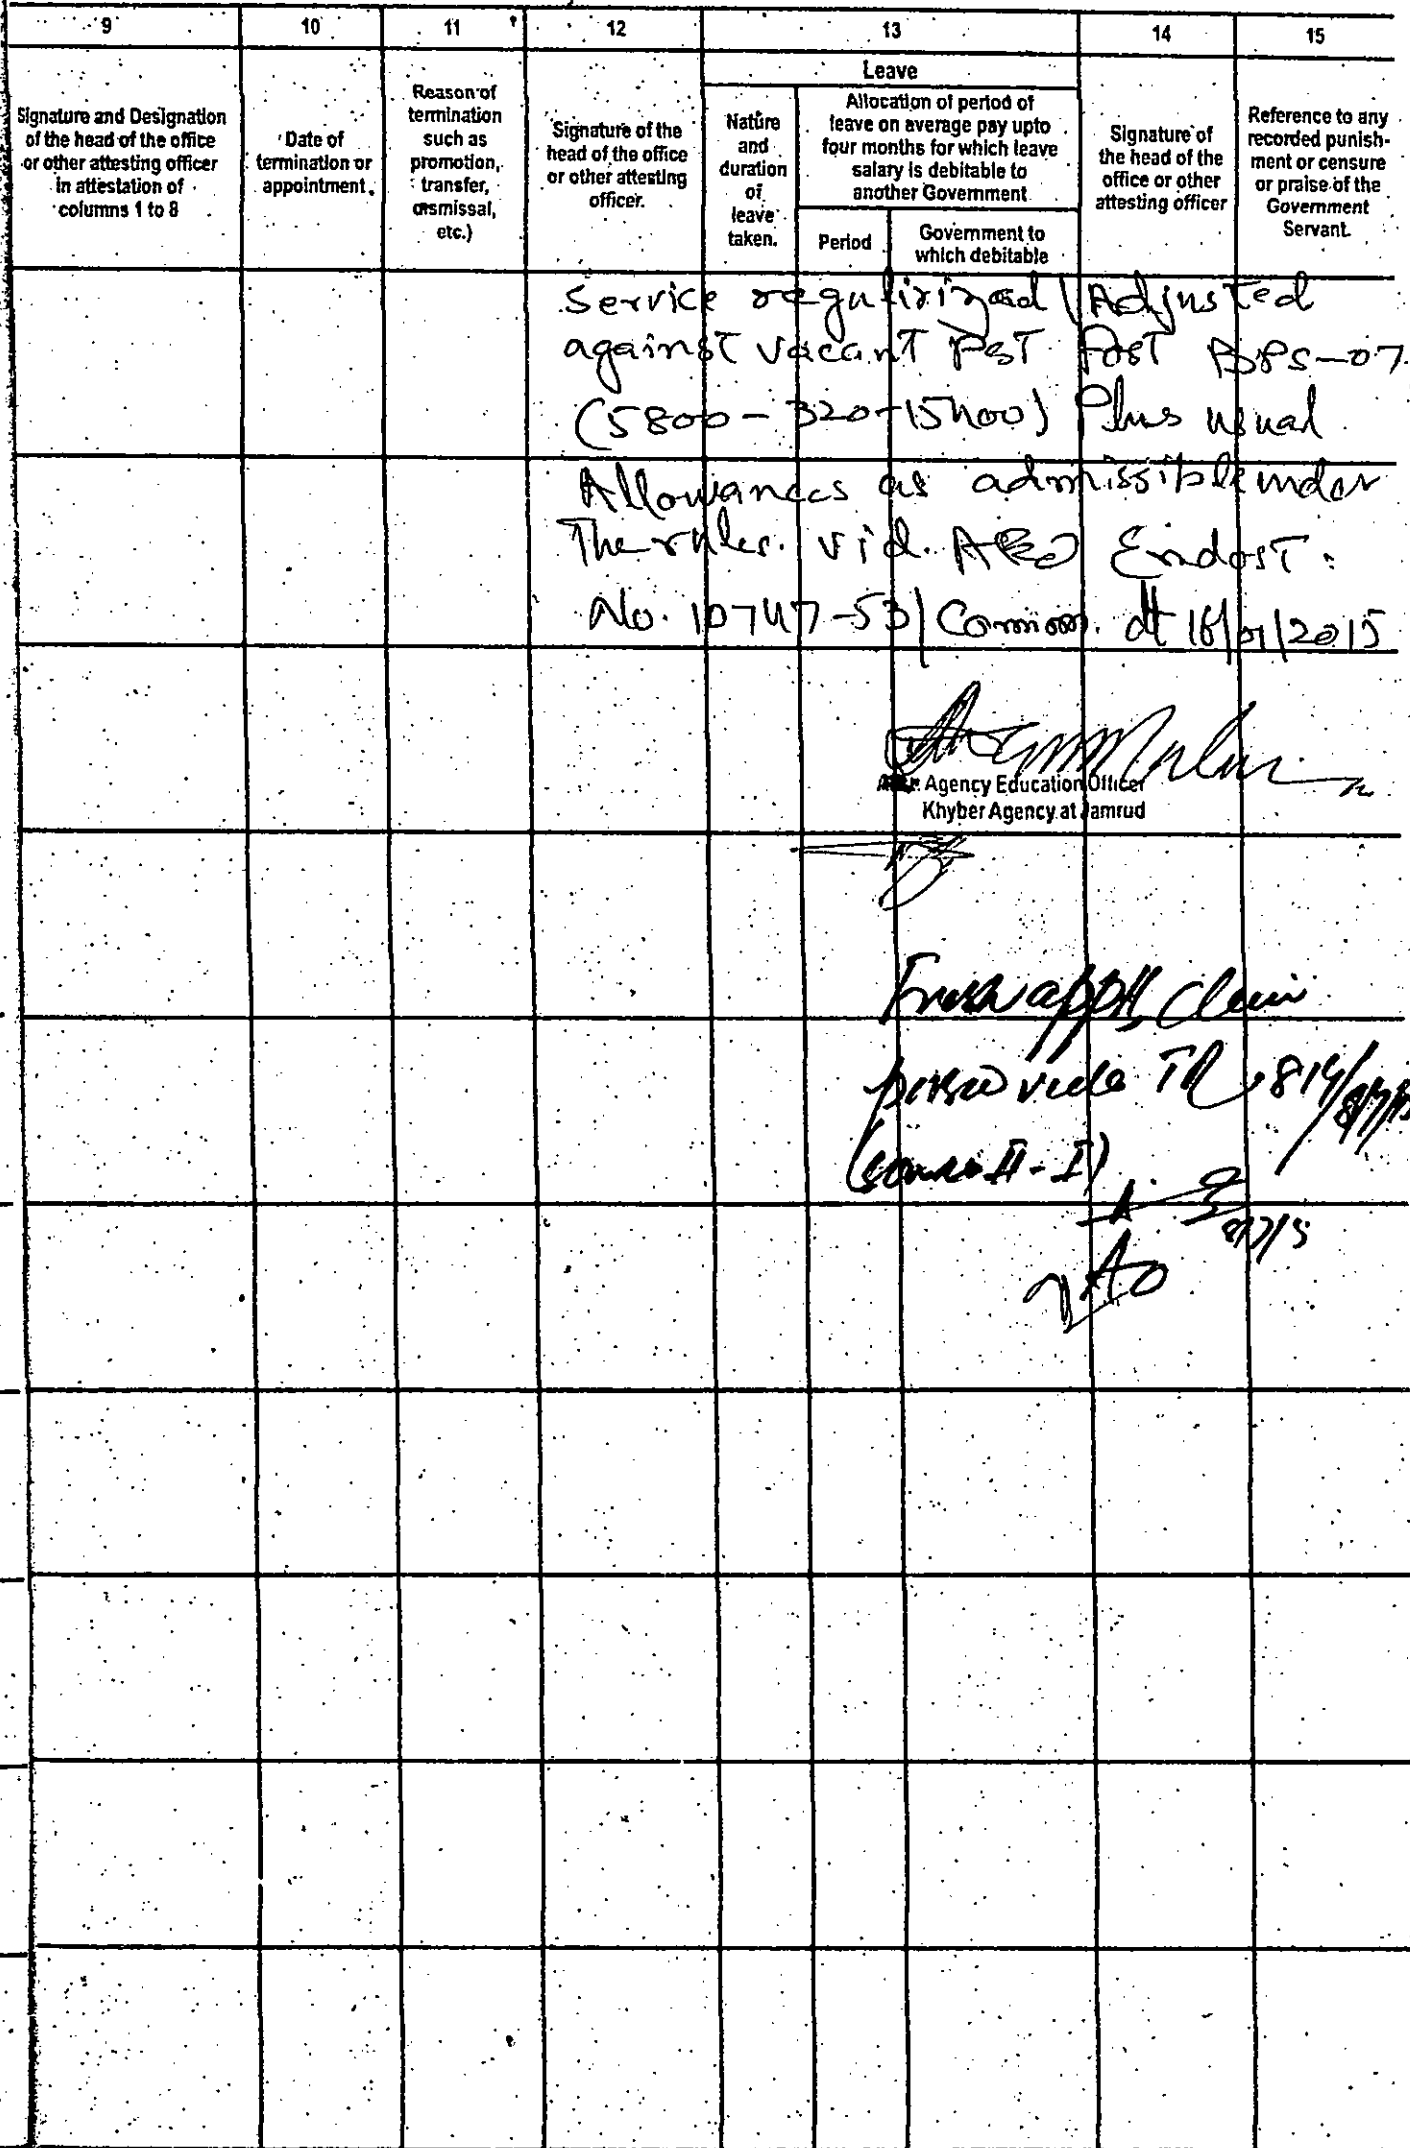 9 10 11 12 13 14 15
Signature and Designation
of the head of the office
or other attesting officer
in attestation of
columns 1 to 8
Date of
termination or
appointment.
Reason of
termination
such as
promotion,
transfer,
dismissal,
etc.)
Signature of the
head of the office
or other attesting
officer.
Leave
Nature
and
duration
of
leave
taken.
Allocation of period of
leave on average pay upto
four months for which leave
salary is debitable to
another Government
Period
Government to
which debitable
Signature of
the head of the
office or other
attesting officer
Reference to any
recorded punish-
ment or censure
or praise of the
Government
Servant.
Service regulirized / Adjusted
against vacant PST Post BPS-07
(5800-320-15400) Plus usual
Allowances as admissible under
The rules. vid. AEO Endost:
No. 10747-53/ dt 16/01/2015
Agency Education Officer
Khyber Agency at Jamrud
Fresh appt, claim
vide TR 814/
AAO